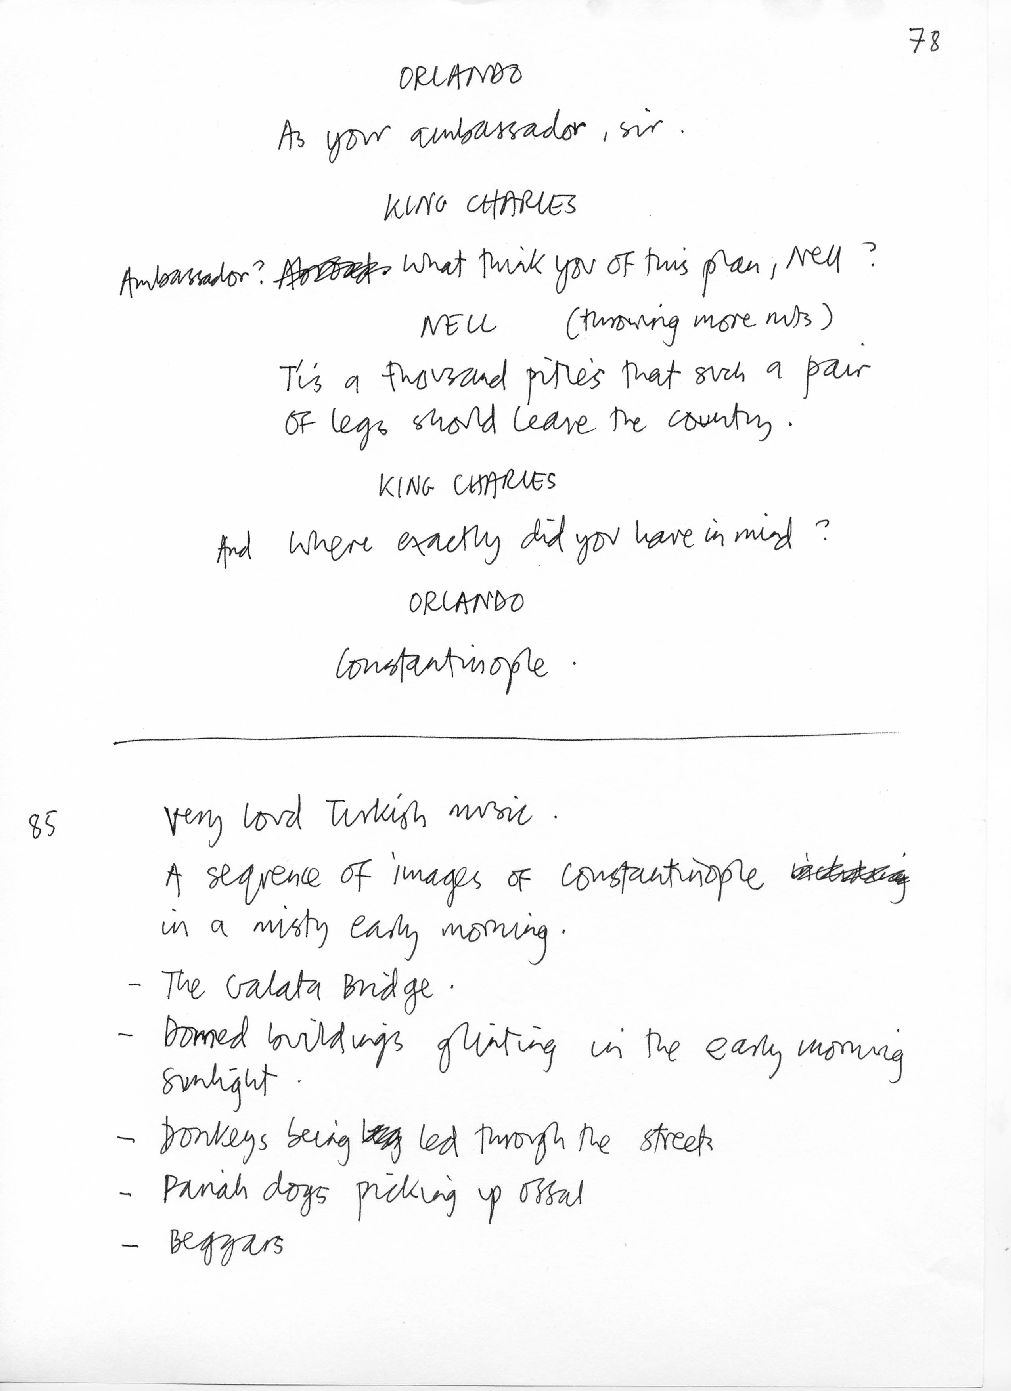 78
ORLANDO
As your ambassador, sir.
KING CHARLES
Ambassador? What think you of this plan, Nell?
NELL (throwing more nuts)
T'is a thousand pities that such a pair
of legs should leave the country.
KING CHARLES
And where exactly did you have in mind?
ORLANDO
Constantinople.
85 Very loud Turkish music.
A sequence of images of Constantinople
in a misty early morning.
- The Galata Bridge.
- Domed buildings glinting in the early morning
sunlight.
- Donkeys being led through the streets
- Pariah dogs picking up offal
- Beggars